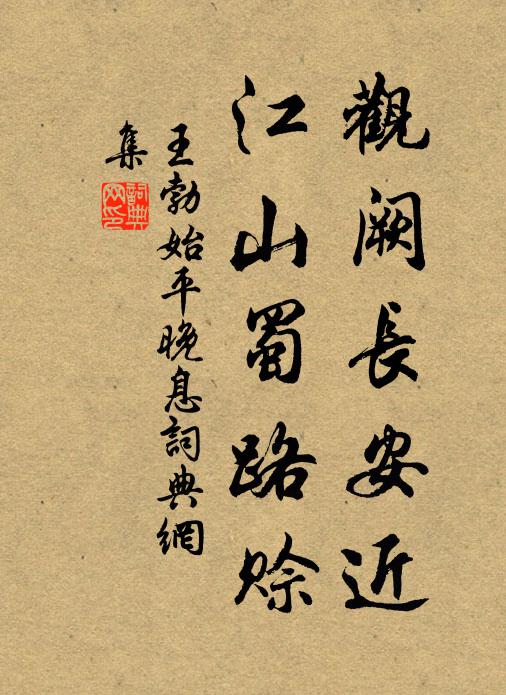 觀阙長安近
江山蜀路赊
王勃始平晚息詞典網
集
詞典
网印